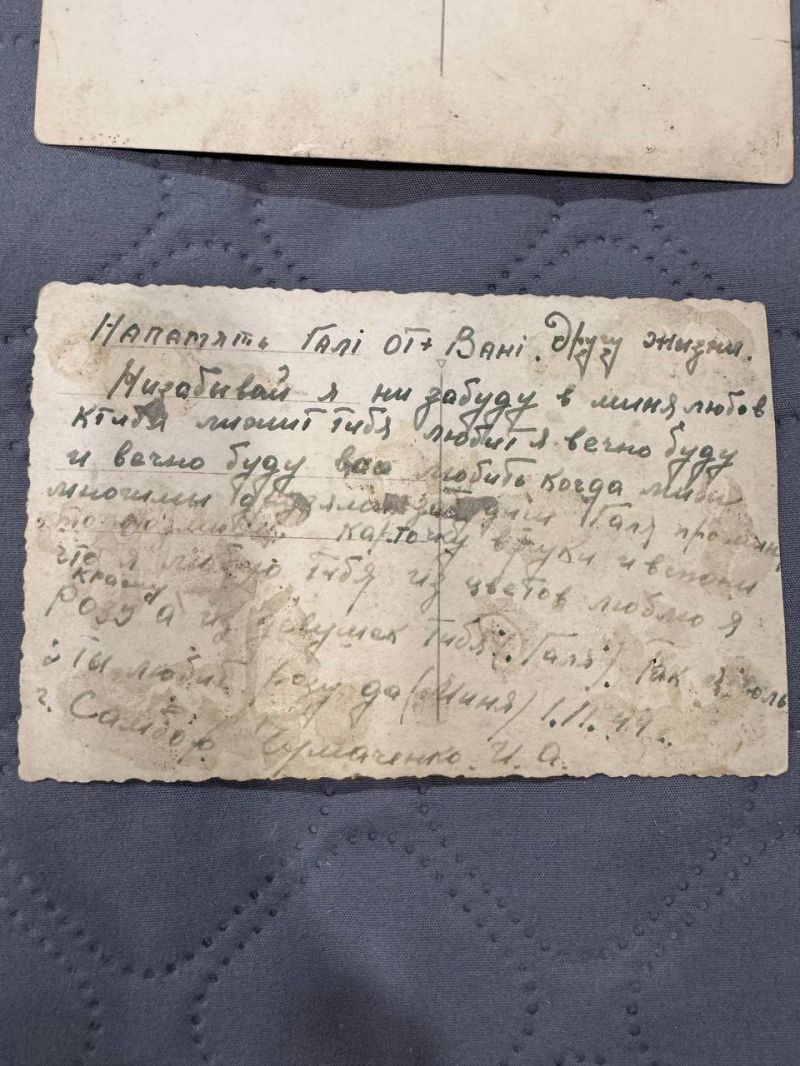 Напамять Галі от Вані. Другу жизни.
Низабивай я ни забуду в миня любов
ктибя лижит тибя любит я вечно буду
и вечно буду вас любить когда
Галя
карточку в руки и вспомни
что я люблю тибя из цветов люблю я
красну
розу а из девушек тибя (Галя) Так и
Ты любиш розу да (миня) 1.II.49.
г. Самбор. И. А.